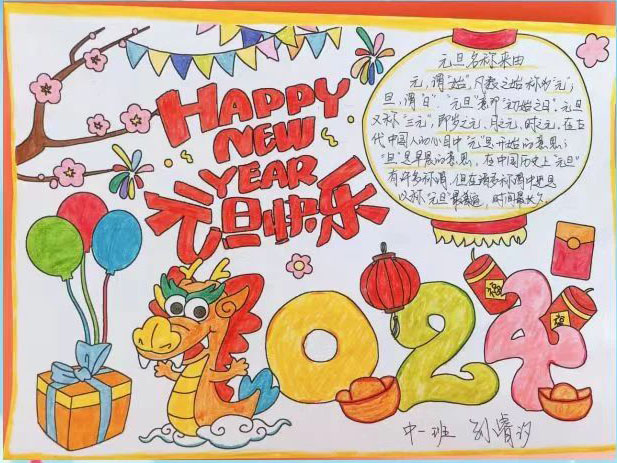 HAPPY
NEW
YEAR
元旦快乐
元旦名称来由
元,谓"始",凡数之始称为"元";
旦,谓"日","元旦"意即"初始之日"。元旦
又称"三元",即岁之元、月之元、时之元。在古
代中国人的心目中"元"是开始的意思;
"旦"是早晨的意思。在中国历史上"元旦"
有许多称谓,但在诸多称谓中还是
以称"元旦"最普遍,时间最长久。
2024
福
中一班 孙睿汐